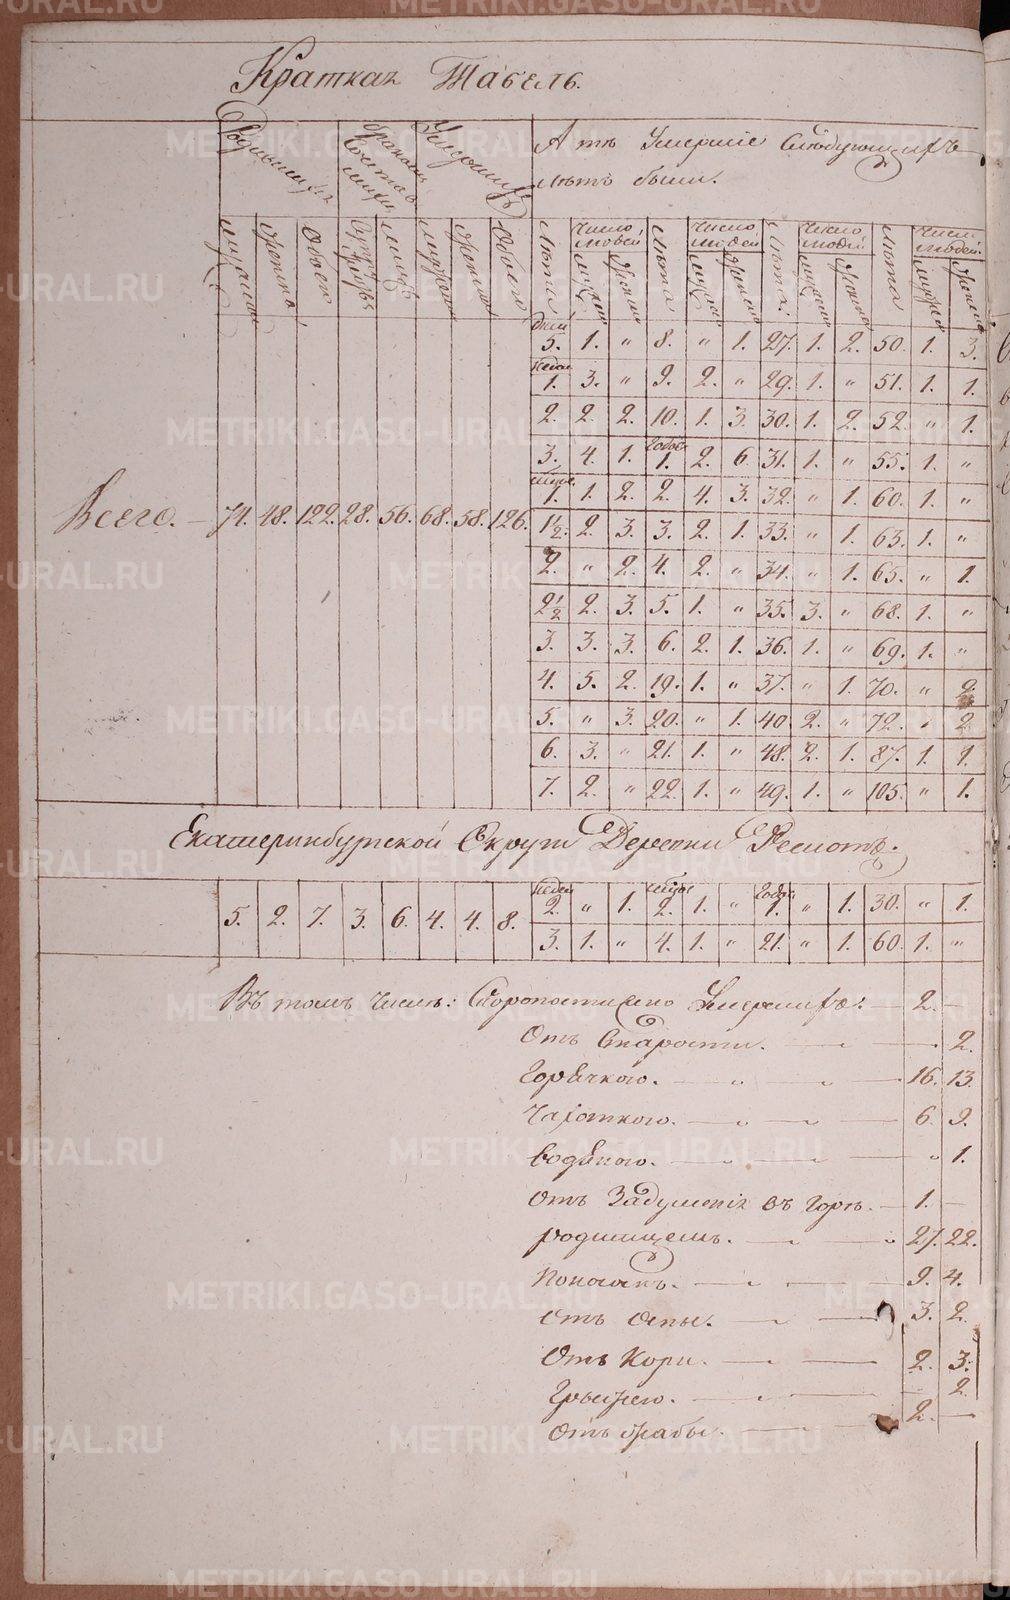 Краткая Табель.
Родившихся
браком сочетавшихся
Умершихъ
А тѣ Умершіе Слѣдующихъ
лѣтъ были.
мужска женска обоего лицъ мужска женска обоего
Лѣта число людей Лѣта число людей Лѣта число людей Лѣта число людей
дней
5. 1. " 8. " 1. 27. 1. 2. 50. 1. 3.
недѣл
1. 3. " 9. 2. " 29. 1. " 51. 1. 1.
2. 2. 2. 10. 1. 3. 30. 1. 2. 52. " 1.
годов
3. 4. 1. 1. 2. 6. 31. 1. " 55. 1. "
1. 1. 2. 2. 4. 3. 32. " 1. 60. 1. "
Всего. — 74. 48. 122. 28. 56. 68. 58. 126. 1 1/2. 2. 3. 3. 2. 1. 33. " 1. 63. 1. "
2. " 2. 4. 2. " 34. " 1. 65. " 1.
2 1/2 2. 3. 5. 1. " 35. 3. " 68. 1. "
3. 3. 3. 6. 2. 1. 36. 1. " 69. 1. "
4. 5. 2. 19. 1. " 37. " 1. 70. " 2.
5. " 3. 20. " 1. 40. 2. " 72. " 2.
6. 3. " 21. 1. " 48. 2. 1. 87. 1. 1.
7. 2. " 22. 1. " 49. 1. " 105. " 1.
Екатеринбургской Округи Деревни
недел годов
5. 2. 7. 3. 6. 4. 4. 8. 2. " 1. 2. 1. " 1. " 1. 30. " 1.
3. 1. " 4. 1. " 21. " 1. 60. 1. "
Въ томъ числѣ: Скоропостижно Умершихъ: — 2. —
Отъ Старости. — 2.
Горячкою. — 16. 13.
Чахоткою. — 6. 9.
Водяною. — " 1.
Отъ Задушенія въ Горлѣ. — 1. —
родимцемъ. — 27. 22.
Поносомъ. — 9. 4.
отъ оспы. — 3. 2.
Отъ Кори. — 2. 3.
Грыжею. — 2.
Отъ — 2. —
METRIKI.GASO-URAL.RU